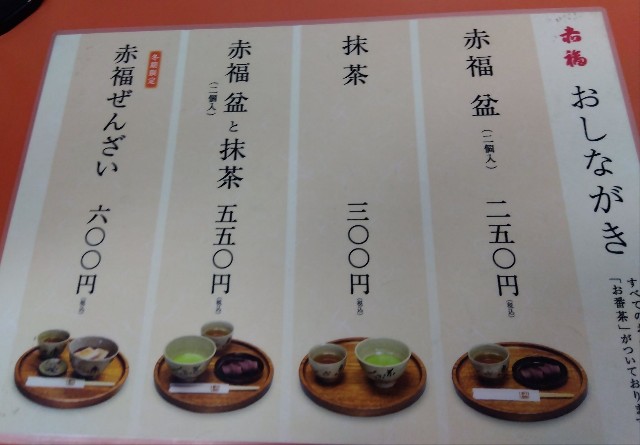 赤福
おしながき
「お番茶」がついております
赤福 盆（二個入）
二五〇円（税込）
抹茶
三〇〇円（税込）
赤福 盆と抹茶
（二個入）
五五〇円（税込）
冬期限定
赤福ぜんざい
六〇〇円（税込）